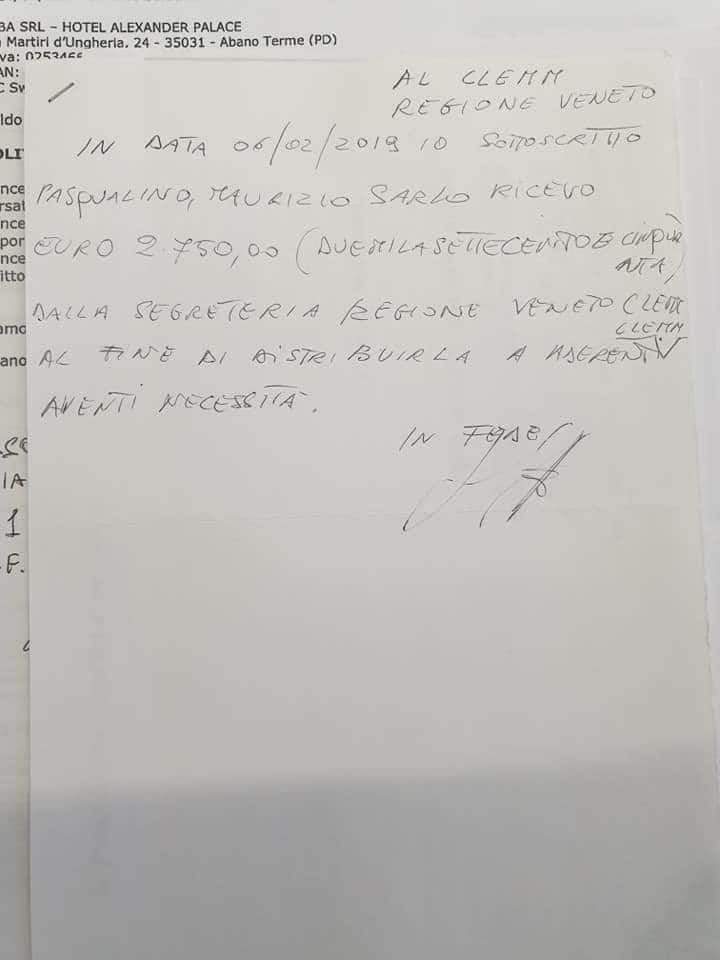 BA SRL – HOTEL ALEXANDER PALACE
Martiri d'Ungheria. 24 - 35031 - Abano Terme (PD)
va:
AN:
C Sw
ldo
OLI
nce
rsat
nce
por
nce
itto
amo
ano
IA
1
F.
AL CLEMM
REGIONE VENETO
IN DATA 06/02/2019 IO SOTTOSCRITTO
PASQUALINO, MAURIZIO SARLO RICEVO
EURO 2.750,00 (DUEMILASETTECENTO E CINQUA
NTA)
DALLA SEGRETERIA REGIONE VENETO CLEMM
CLEMM
AL FINE DI DISTRIBUIRLA A ADERENTI
AVENTI NECESSITÀ.
IN FEDE